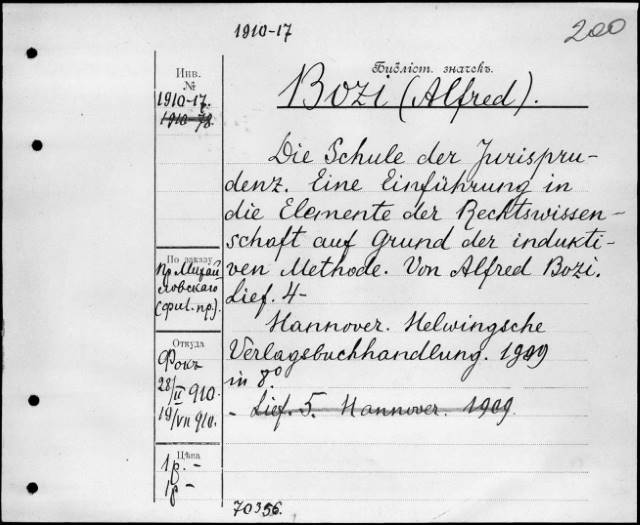 1910-17
200
Инв.
№
1910-17.
1910-78.
Библіот. значекъ.
Bozi (Alfred).
Die Schule der Jurispru-
denz. Eine Einführung in
die Elemente der Rechtswissen-
schaft auf Grund der indukti-
ven Methode. Von Alfred Bozi.
Lief. 4-
Hannover. Helwingsche
Verlagsbuchhandlung. 1909
in 8.º
- Lief. 5. Hannover. 1909.
По заказу
пр. Михай
ловскаго
Откуда
Фокъ
28/II 910.
19/VII 910.
Цѣна
1р. -
1р -
70356.